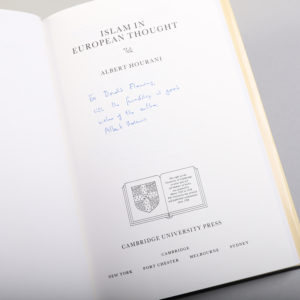 ISLAM IN
EUROPEAN THOUGHT
ALBERT HOURANI
For Donald
with the friendly & good
wishes of the author
Albert Hourani
CAMBRIDGE UNIVERSITY PRESS
CAMBRIDGE
NEW YORK PORT CHESTER MELBOURNE SYDNEY